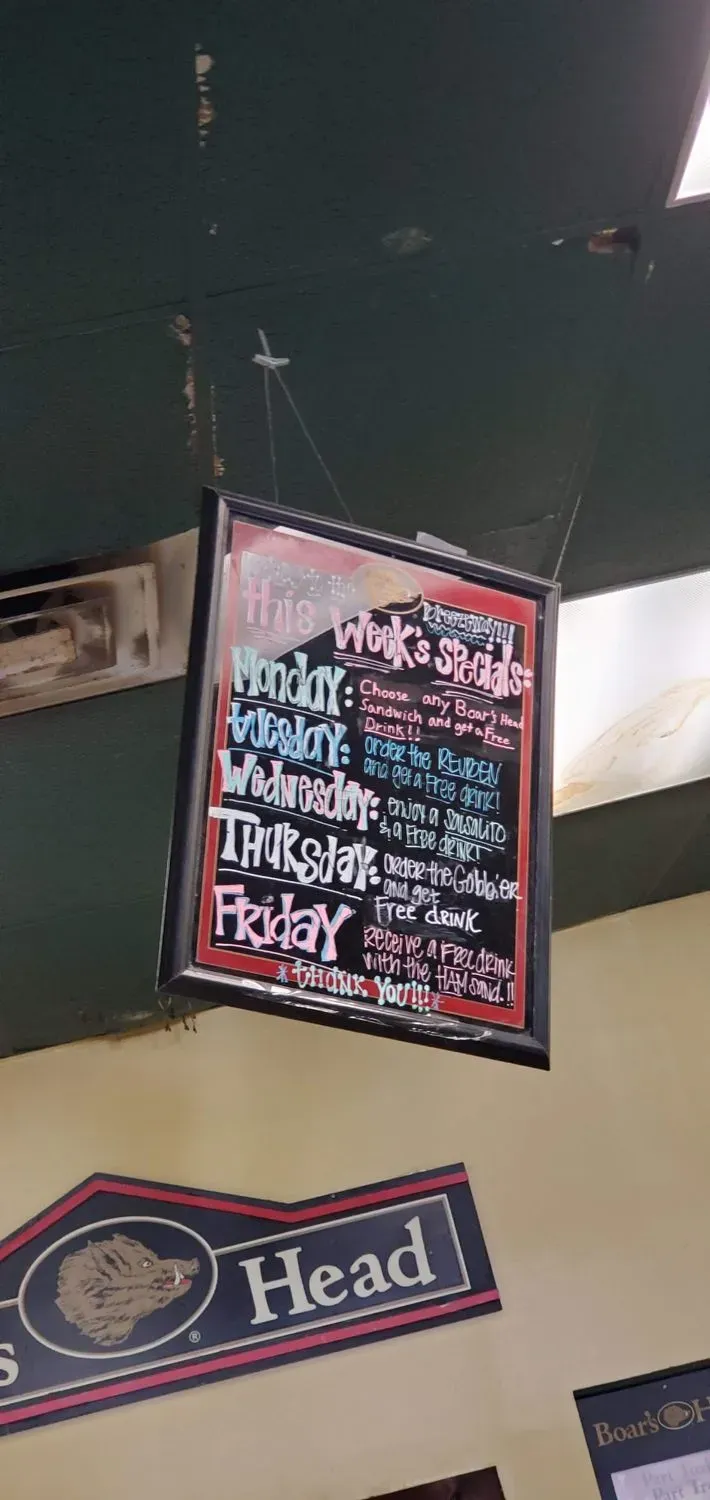 this Week's Specials:
Monday: Choose any Boar's Head
Sandwich and get a Free
Drink!!
tuesday: order the REUBEN
and get a Free drink!
Wednesday: enjoy a Salsalito
& a Free drink!
THURSday: order the Gobbler
and get
Free dRINK
FRiday Receive a Free drink
with the HAM Sand.!!
*thank you!!!*
s Head
®
Boar's H